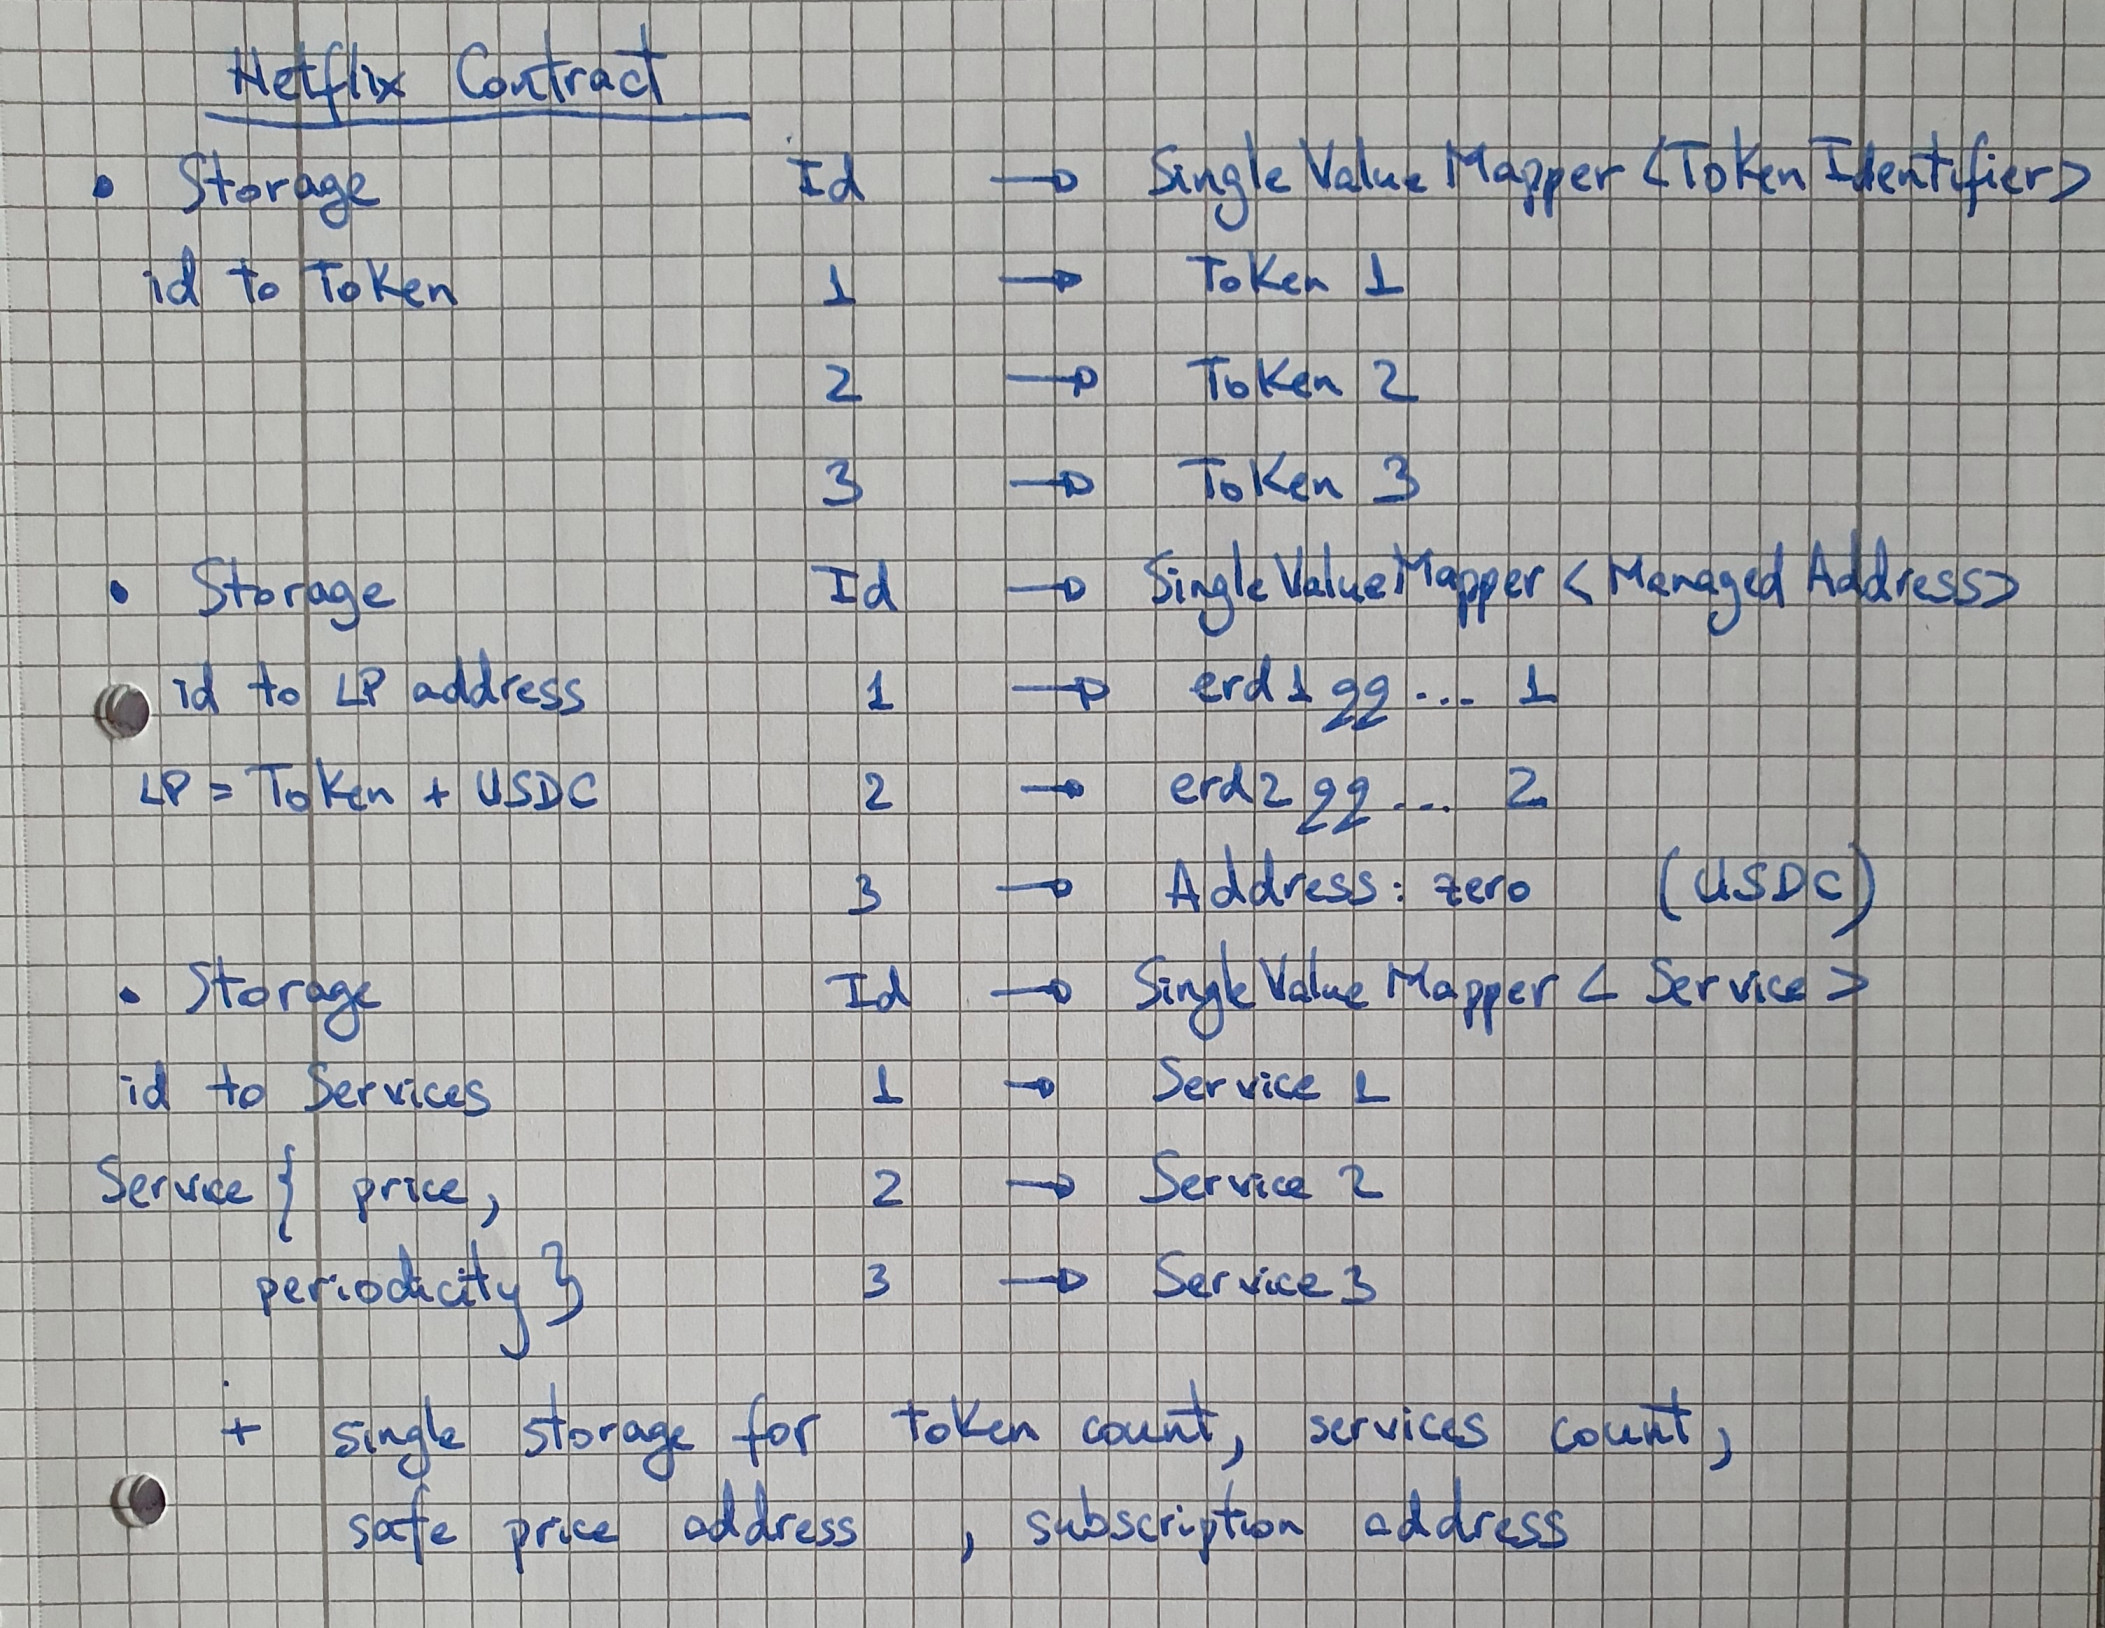 Netflix Contract
• Storage Id → SingleValueMapper<TokenIdentifier>
id to Token 1 → Token 1
2 → Token 2
3 → Token 3
• Storage Id → SingleValueMapper<ManagedAddress>
id to LP address 1 → erd1qq... 1
LP = Token + USDC 2 → erd2qq... 2
3 → Address: zero (USDC)
• Storage Id → SingleValueMapper<Service>
id to Services 1 → Service 1
Service { price, 2 → Service 2
periodicity } 3 → Service 3
+ single storage for token count, services count,
safe price address , subscription address